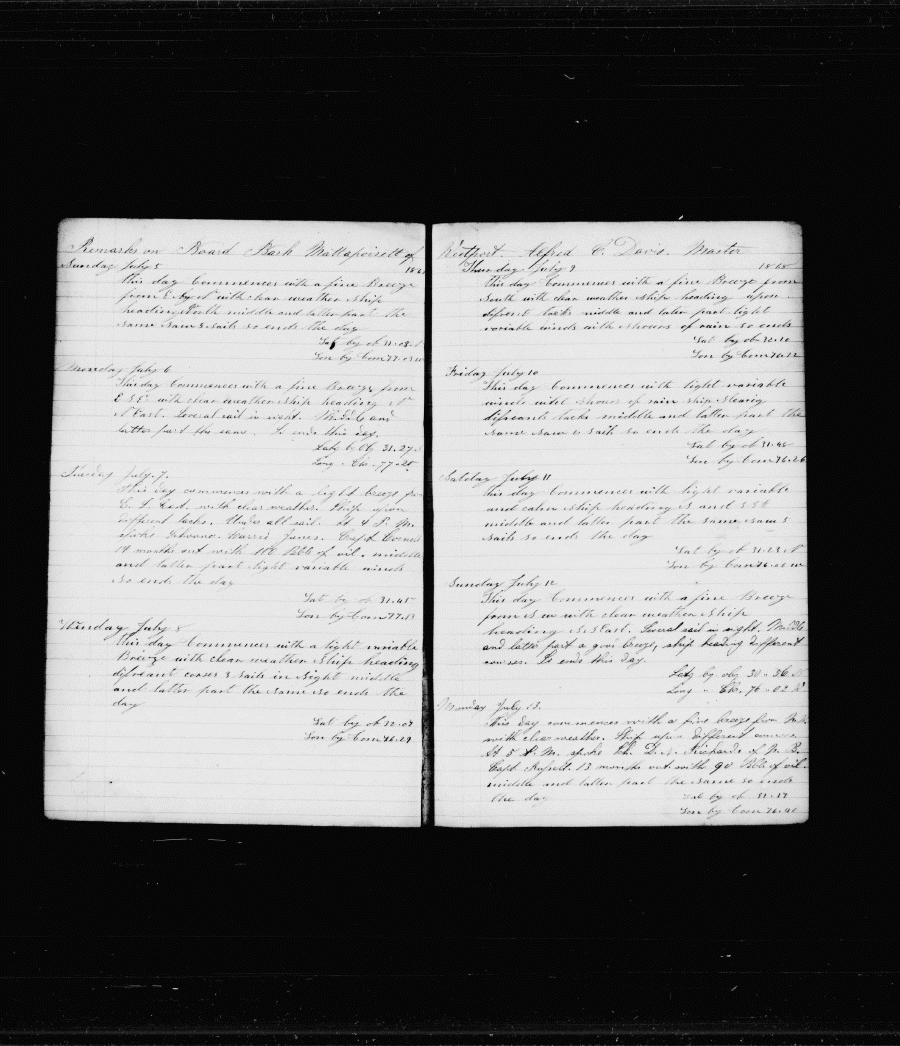 Remarks on Board Bark Mattapoisett of
Sunday July 5 1868
this day Commences with a fine Breeze
from E by N with clear weather ship
heading North middle and latter part the
same saw 2 sails so ends the day
Lat by ob 31-08 N
Lon by Cron 77-03 W
Monday July 6
This day Commences with a fine Breeze from
E S E with clear weather ship heading N
N East. Several sail in sight. Middle and
latter part the same. So ends this day.
Lat by Ob 31.27
Long - Chr. 77-25
Tuesday July. 7.
This day commences with a light breeze from
E. S. East. with clear weather. Ship upon
different tacks. Under all sail. At 4 P. M.
spoke James. Capt.
19 months out with 100 Bbls of oil. middle
and latter part light variable winds
so ends the day
Lat by ob 31.45
Lon by Cron 77.13
Wenday July 8
this day Commences with a light variable
Breeze with clear weather Ship heading
difreant corses 3 sails in sight middle
and latter part the same so ends the
day
Lat by ob 32-07
Lon by Cron 76.29
Westport. Alfred C. Davis. Master
Thursday July 9 1868
this day Commences with a fine Breeze from
South with clear weather ship heading upon
difrent tacks middle and latter part light
variable winds with shours of rain so ends
Lat by ob 32-10
Lon by Cron 76-12
Friday July 10
This day Commences with light variable
winds with shours of rain ship stearig
difreants tacks middle and latter part the
same saw 2 sails so ends the day
Lat by ob 31-40
Lon by Cron 76-26
Satday July 11
this day Commences with light variable
and calm ship heading S and S S E
middle and latter part the same saw 5
sails so ends the day
Lat by ob 31-23 N
Lon by Cron 76-00 W
Sunday July 12
This day Commences with a fine Breeze
from S W with clear weather ship
heading S. S. East. Several sail in sight. Middle
and latter part a good breeze, ship heading different
courses. So ends this day.
Lat by ob 30-36 N
Long - Chr. 76-02 W
Monday July 13.
This day commences with a fine breeze from
with clear weather. Ship upon different courses
At 5 P. M. spoke Sch. Richards of N. B.
Capt Russell. 13 months out with 90 Bbls of oil.
middle and latter part the same so ends
the day Lat by ob 31-17
Lon by Cron 76.40